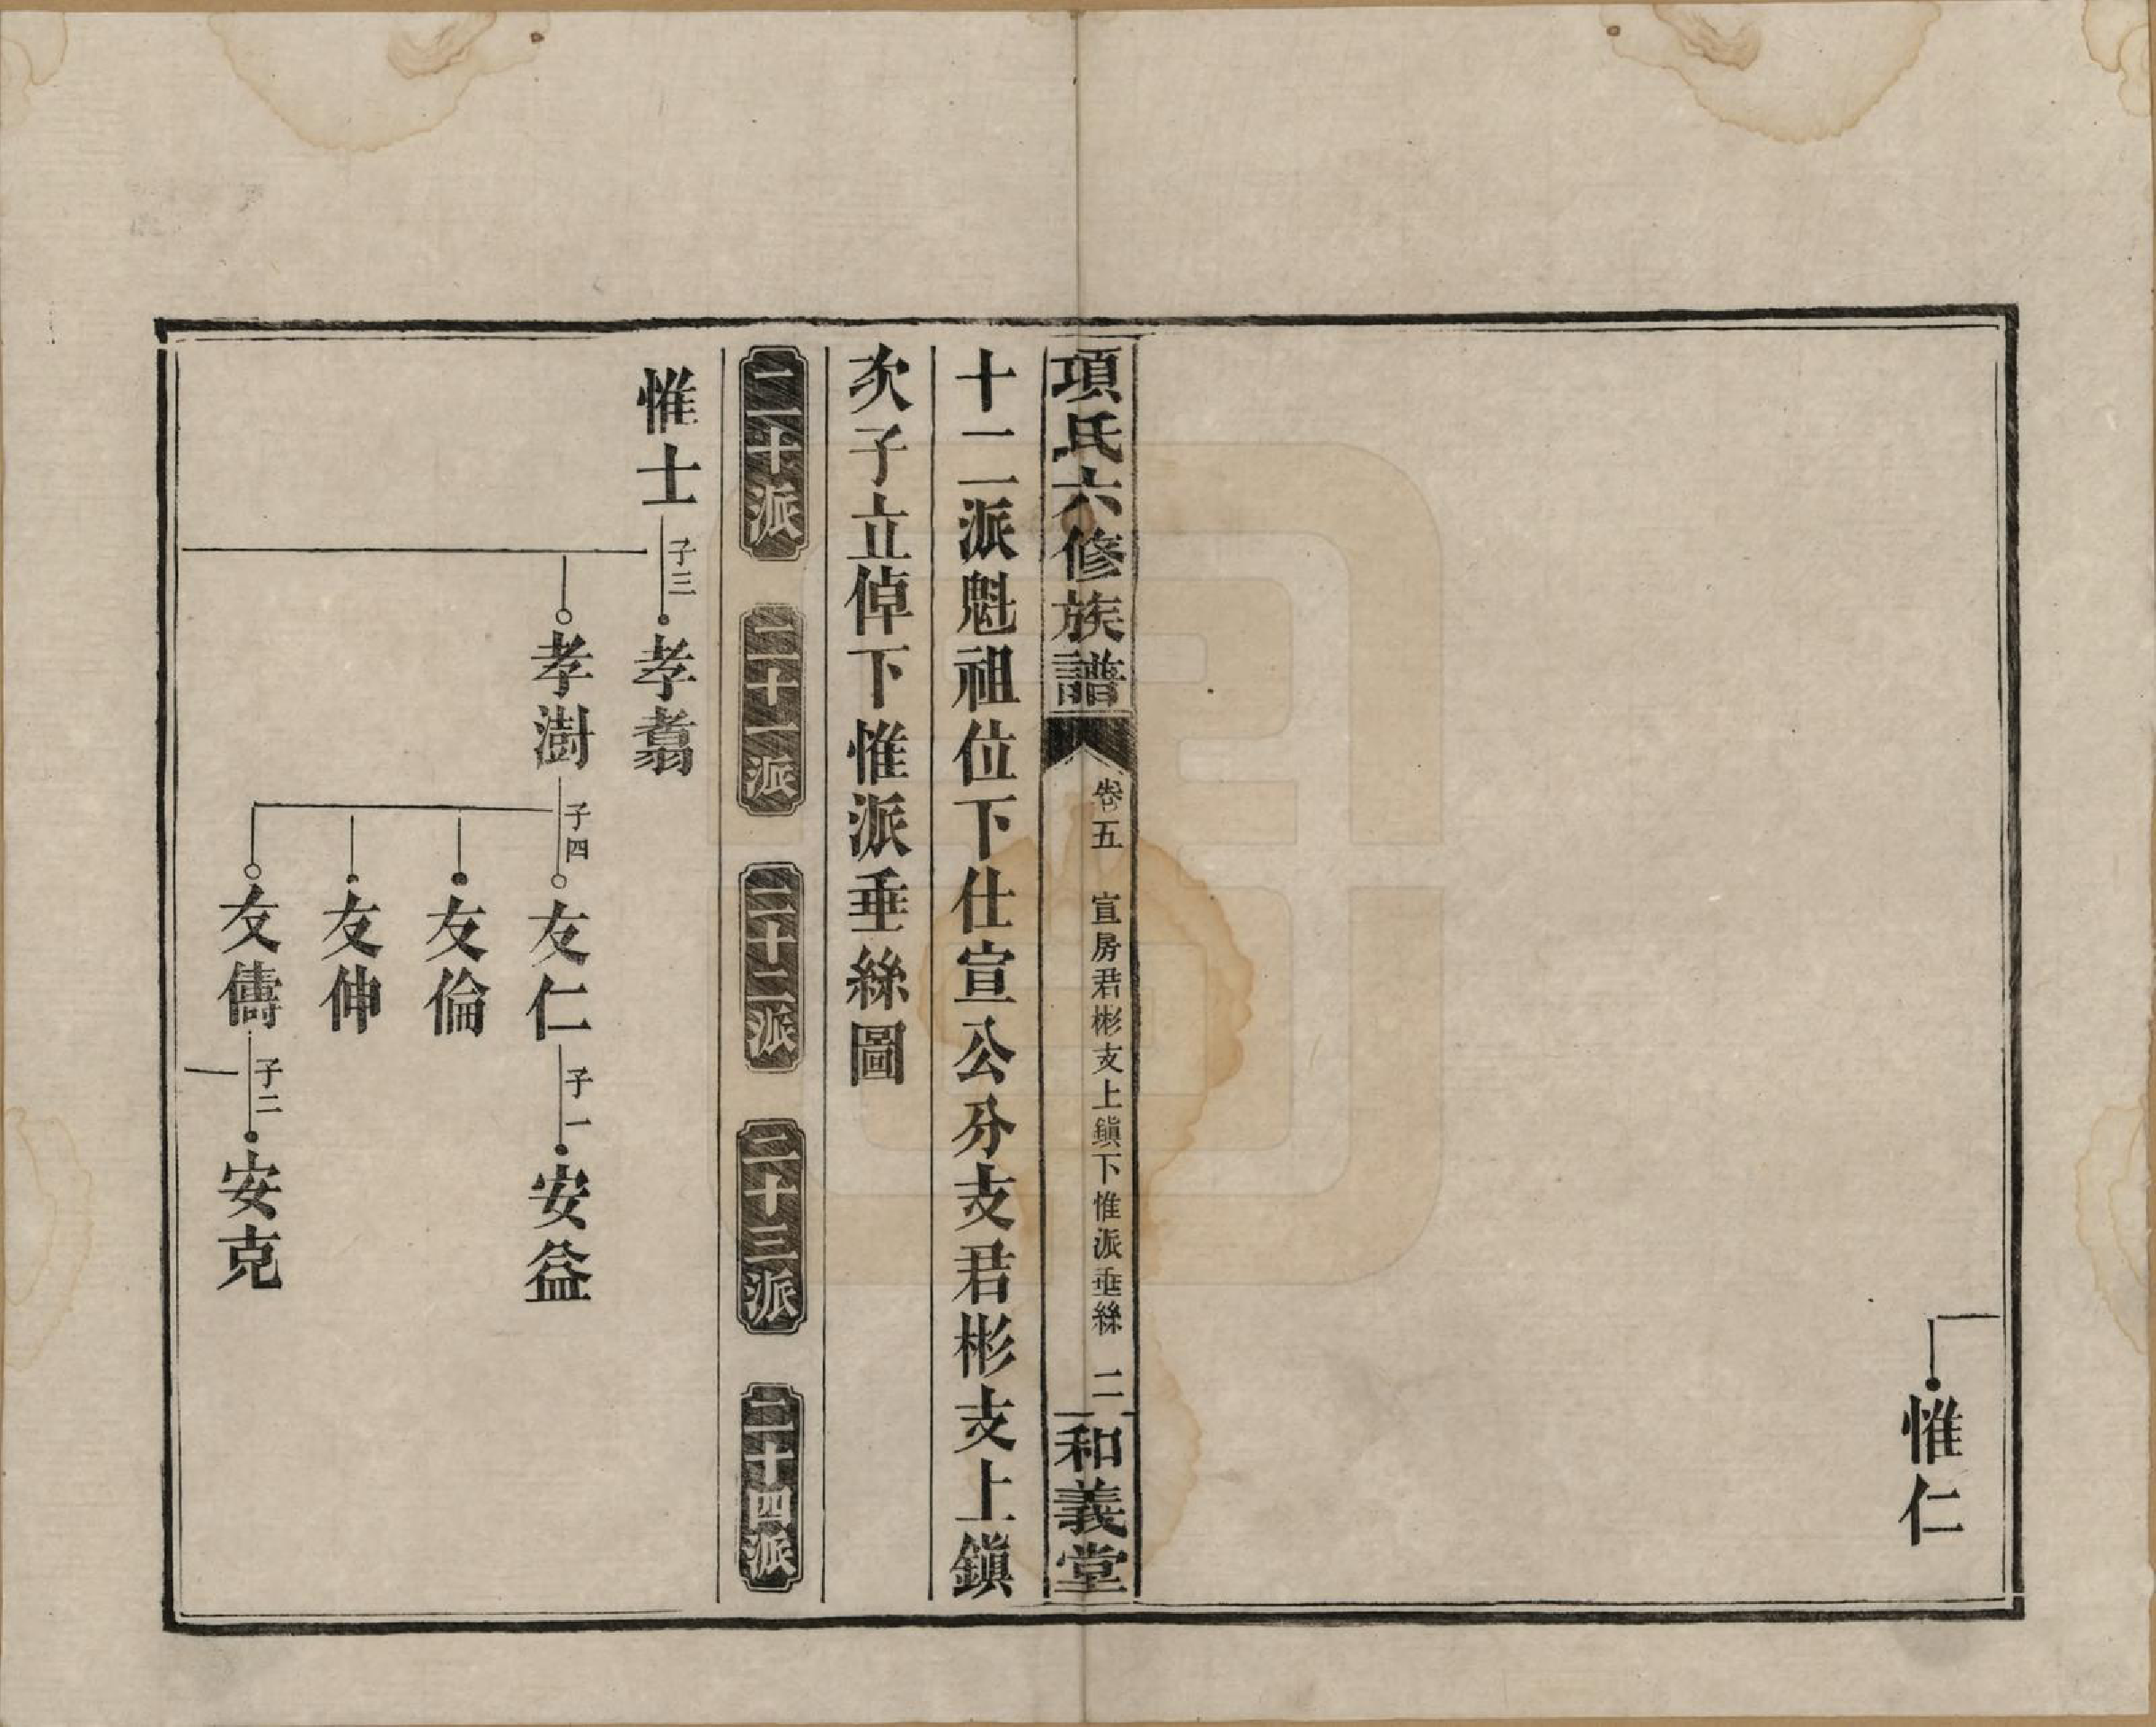 惟仁
項氏六修族譜
卷五 宣房君彬支上鎮下惟派垂絲 二
和義堂
十二派魁祖位下仕宣公分支君彬支上鎮
次子立倬下惟派垂絲圖
二十派 二十一派 二十二派 二十三派 二十四派
惟士 子三 孝翥
孝澍 子四 友仁 子一 安益
友倫
友伸
友儔 子二 安克